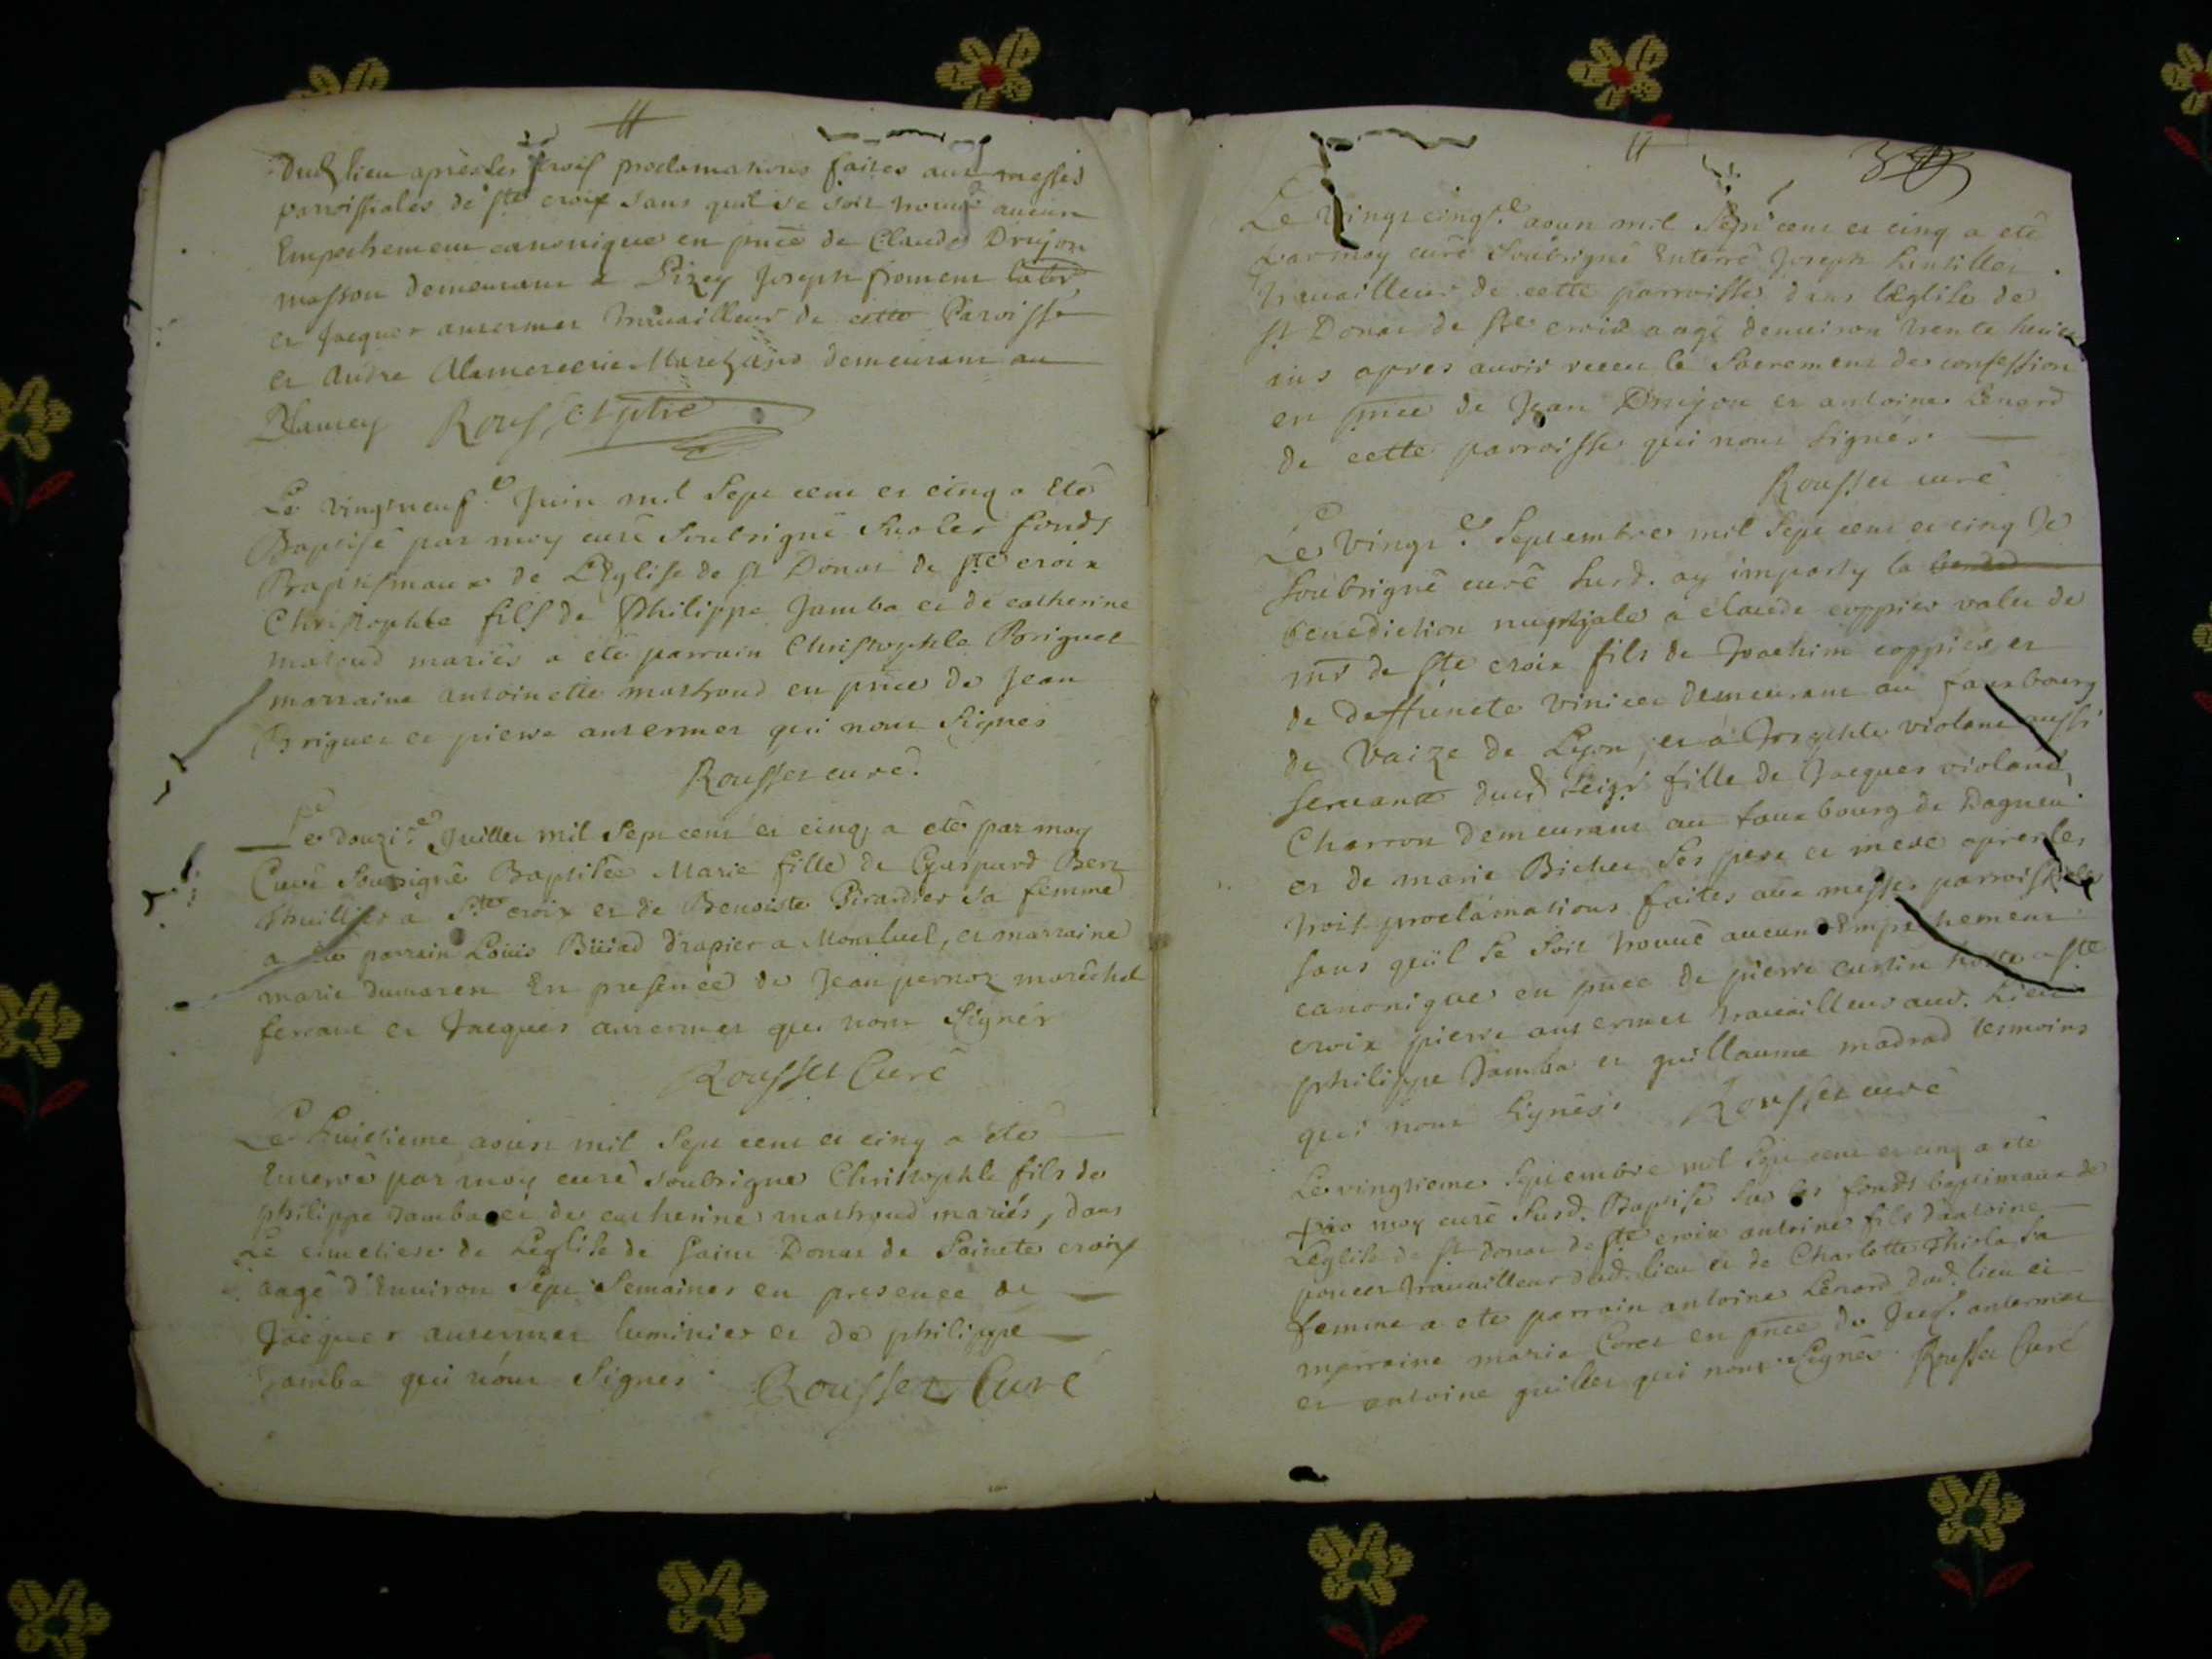 dud lieu apres les trois proclamations faites aux messes
parroissiales de ste croix sans quil se soit trouvé aucun
Empechement canonique en pnce de Claude Drujon
masson demeurant a Pizey Joseph froment
et Jacques ansermet travailleur de cette Paroisse
et Andre Marchand demeurant au
Rousset ptre
Le vingtneuf.e Juin mil Sept cent et cinq a Eté
Baptisé par moy curé Soubsigné Sur les fonds
Baptismaux de L'Eglise de st Donat de ste croix
Christophle fils de Philippe Jamba et de catherine
mariés a eté parrain Christophle Briguet
marraine antoinette mathoud en pnce de Jean
Briguet et pierre ansermet qui nont Signés
Rousset curé.
Le douzi.e Juillet mil Sept cent et cinq, a eté par moy
Curé Soussigné Baptisée Marie fille de Gaspard Ben
Thuillier a Ste croix et de Benoiste Pirardier Sa femme
a eté parrain Louis drapier a Montluel, et marraine
marie dumaren En presence de Jean pernoz maréchal
ferrant et Jacques ansermet qui nont Signés
Rousset Curé
Le huitieme aoust mil Sept cent et cinq a eté
Enterré par moy curé soubsigné Christophle fils de
philippe Jamba et de catherine mathoud mariés, dans
Le cimetiere de Leglise de Saint Donat de Sainte croix
aagé d'Environ Sept Semaines en presence de
Jacques ansermet luminier et de philippe
Jamba qui nont Signés. Rousset Curé
Le vingt cinq.e aoust mil Sept cent et cinq a eté
par moy curé Soubsigné Enterré Joseph
travailleur de cette parroisse dans lEglise de
st Donat de ste croix aagé denviron trente huict
ans apres avoir receu le Sacrement de confession
en pnce de Jean Drujon et antoine Lenard
de cette parroisse qui nont Signés.
Rousset curé
Le vingt.e Septembre mil Sept cent et cinq Je
Soubsigné curé Susd. ay imparty la
benediction nuptiale a claude coppier valet de
mr de ste croix fils de Joachim coppier, et
de deffuncte demeurant au fauxbourg
de Vaize de Lyon, et a Josephte violand aussi
servante dud Seigr fille de Jacques violand,
Charron demeurant au fauxbourg de Dagneu
et de marie Bichet Ses pere et mere apres les
trois proclamations faites aux messes parroissiales
sans quil se soit trouvé aucun Empechement
canonique en pnce de pierre curtin hoste a ste
croix pierre ansermet travailleur aud. Lieu
philippe Jamba et guillaume madrad temoins
qui nont Signés. Rousset curé
Le vingtieme Septembre mil Sept cent et cinq a eté
par moy curé Susd. Baptisé Sur les fonds baptimaux de
Leglise de st donat de ste croix antoine fils dantoine
poncet travailleur dud. lieu et de Charlotte Thirla Sa
femme a eté parrain antoine Lenard dud. lieu et
marraine marie Coret en pnce de Jacq. ansermet
et antoine guillet qui nont Signés. Rousset Curé